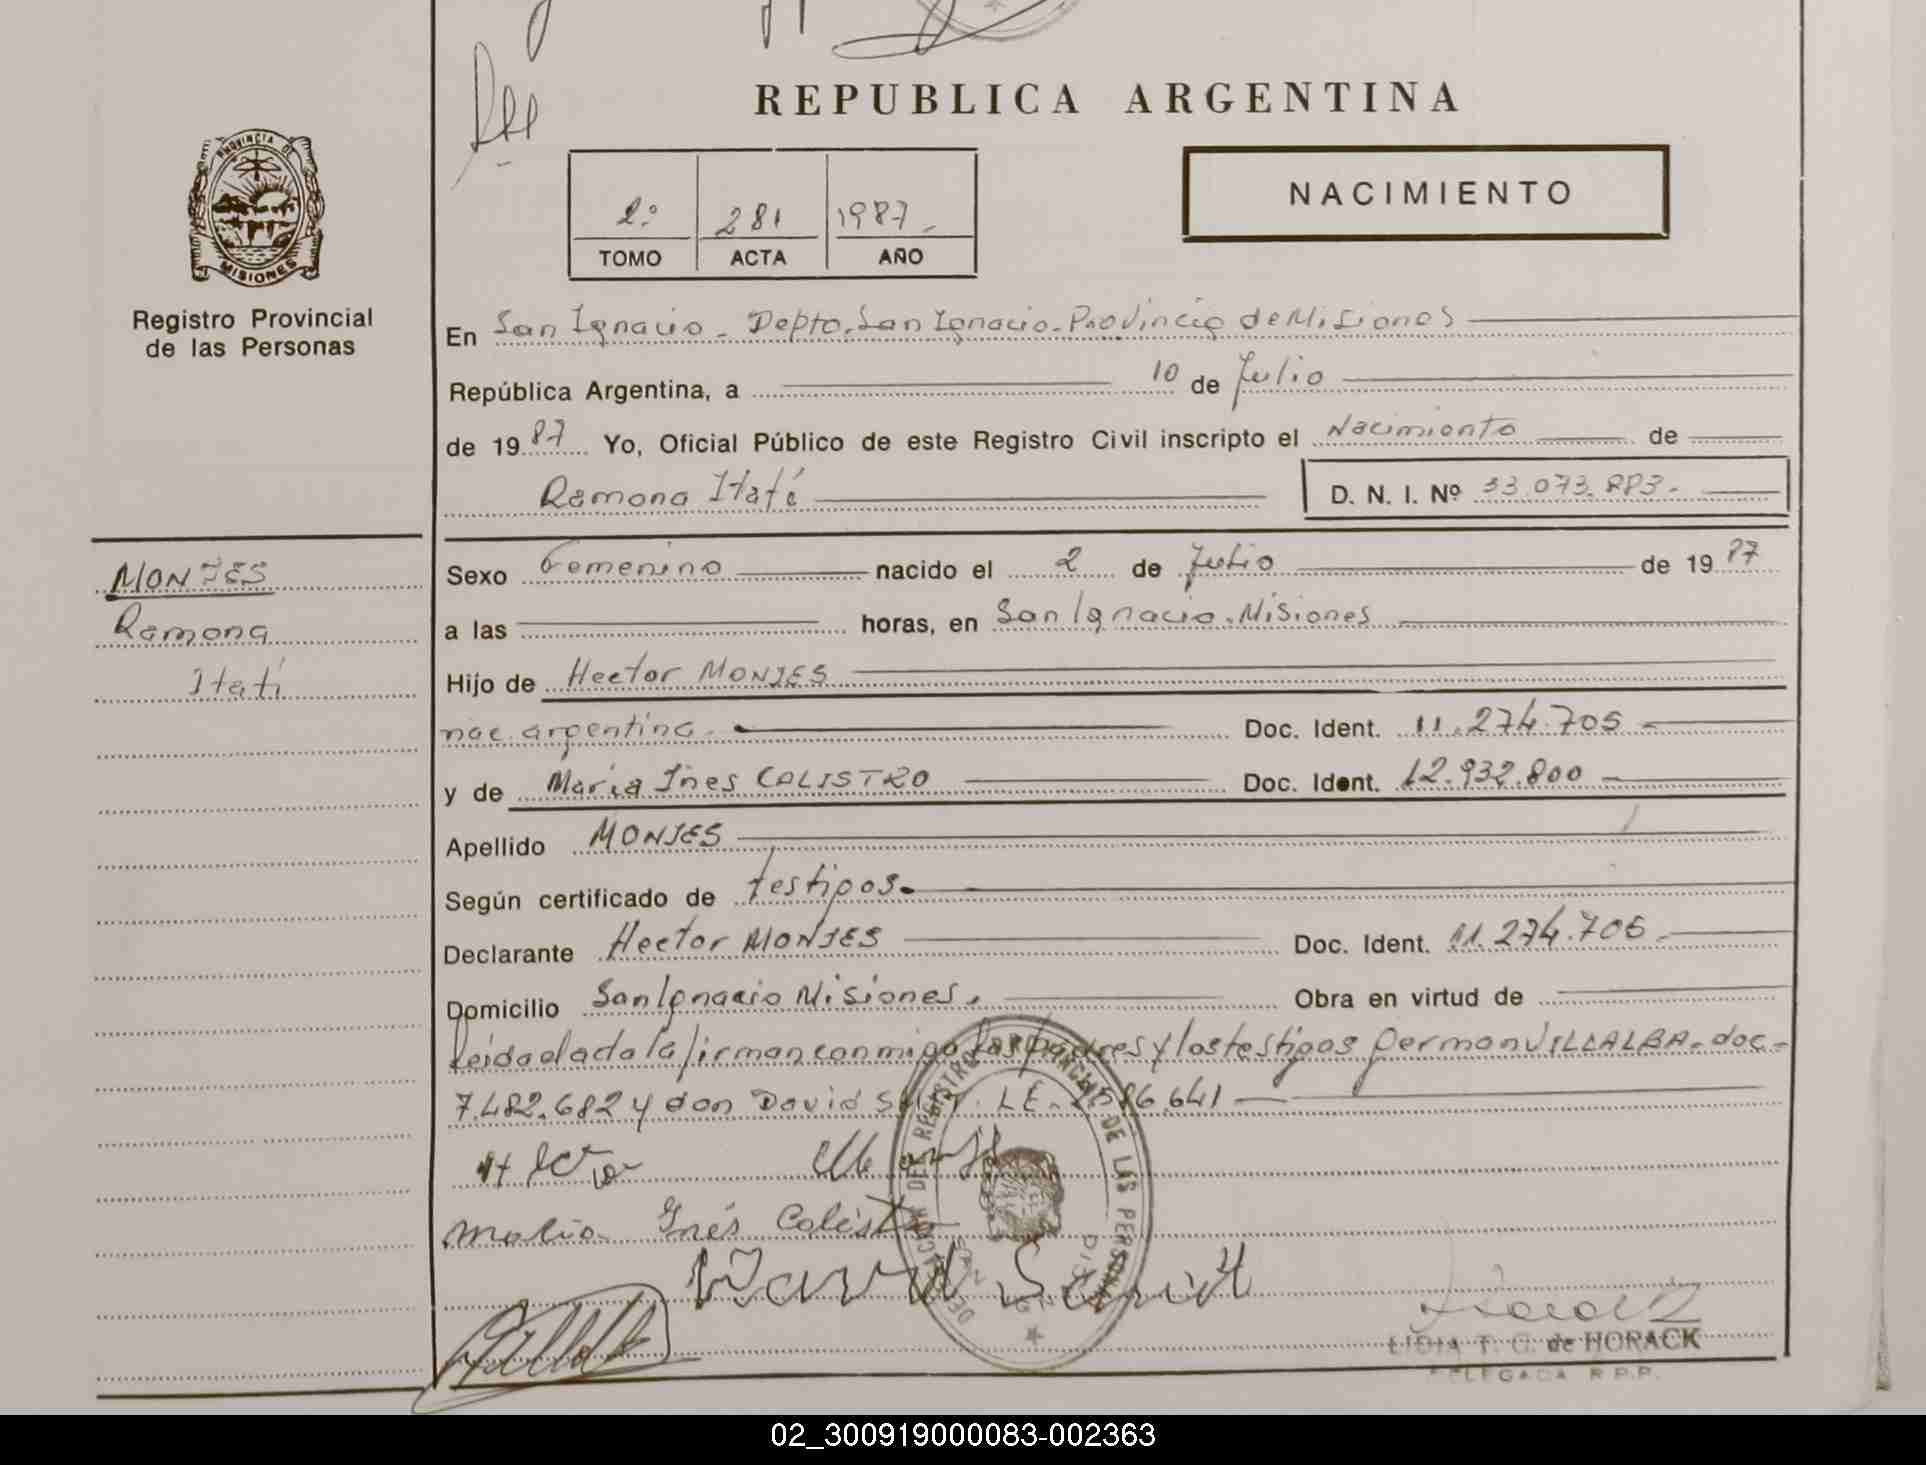 REPUBLICA ARGENTINA
PROVINCIA DE
MISIONES
Registro Provincial
de las Personas
2º 281 1987
TOMO ACTA AÑO
NACIMIENTO
En San Ignacio - Depto. San Ignacio - Provincia de Misiones
República Argentina, a 10 de Julio
de 1987 Yo, Oficial Público de este Registro Civil inscripto el Nacimiento de
Ramona Itatí D. N. I. Nº 33.073.883-
MONJES
Ramona
Itatí
Sexo Femenino nacido el 2 de Julio de 1987
a las horas, en San Ignacio. Misiones
Hijo de Hector MONJES
nac. argentina. Doc. Ident. 11.274.705
y de María Ines CALISTRO Doc. Ident. 12.932.800
Apellido MONJES
Según certificado de testigos.
Declarante Hector MONJES Doc. Ident. 11.274.705.
Domicilio San Ignacio Misiones. Obra en virtud de
Leida el acta la firman conmigo los padres y los testigos German VILLALBA. doc-
7.482.682 y don David LE. 86.641
Maria Inés Calistro
David
LIDIA T. G. de HORACK
DELEGADA R.P.P.
DELEGACION DEL REGISTRO PROVINCIAL DE LAS PERSONAS
02_300919000083-002363